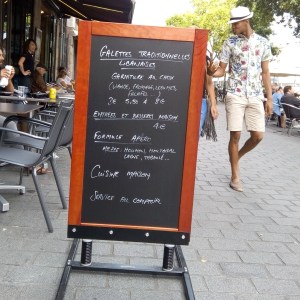 GALETTES TRADITIONNELLES
LIBANAISES
GARNITURE AU CHOIX
(VIANDE, FROMAGE, LÉGUMES,
FALAFEL...)
DE 5,50 À 8€
ENTRÉES ET DESSERTS MAISON
4€
FORMULE APÉRO:
MEZZE: HOUMOUS, MOUTABAL
LABNÉ, TABOULÉ...
CUISINE MAISON
SERVICE AU COMPTOIR